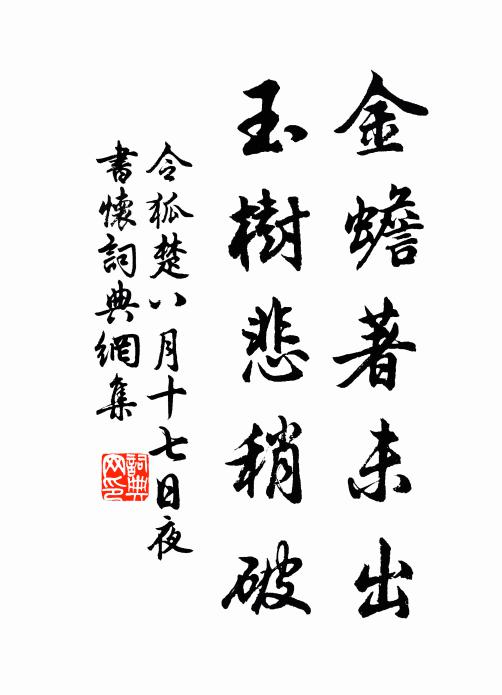 金蟾著未出
玉樹悲稍破
令狐楚八月十七日夜
書懷詞典網集
詞典网印